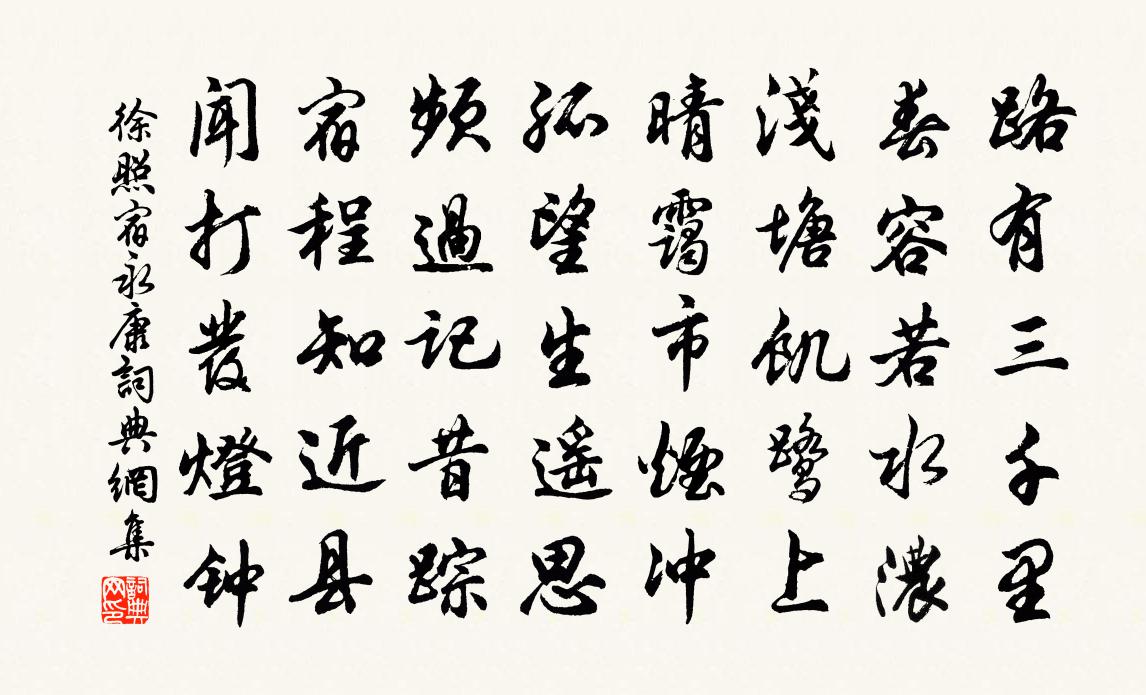 路有三千里
春容若水濃
淺塘飢鷺上
晴靄市煙冲
孤望生遥思
頻過記昔踪
宿程知近县
闻打發燈钟
徐照宿永康詞典網集
詞典网印